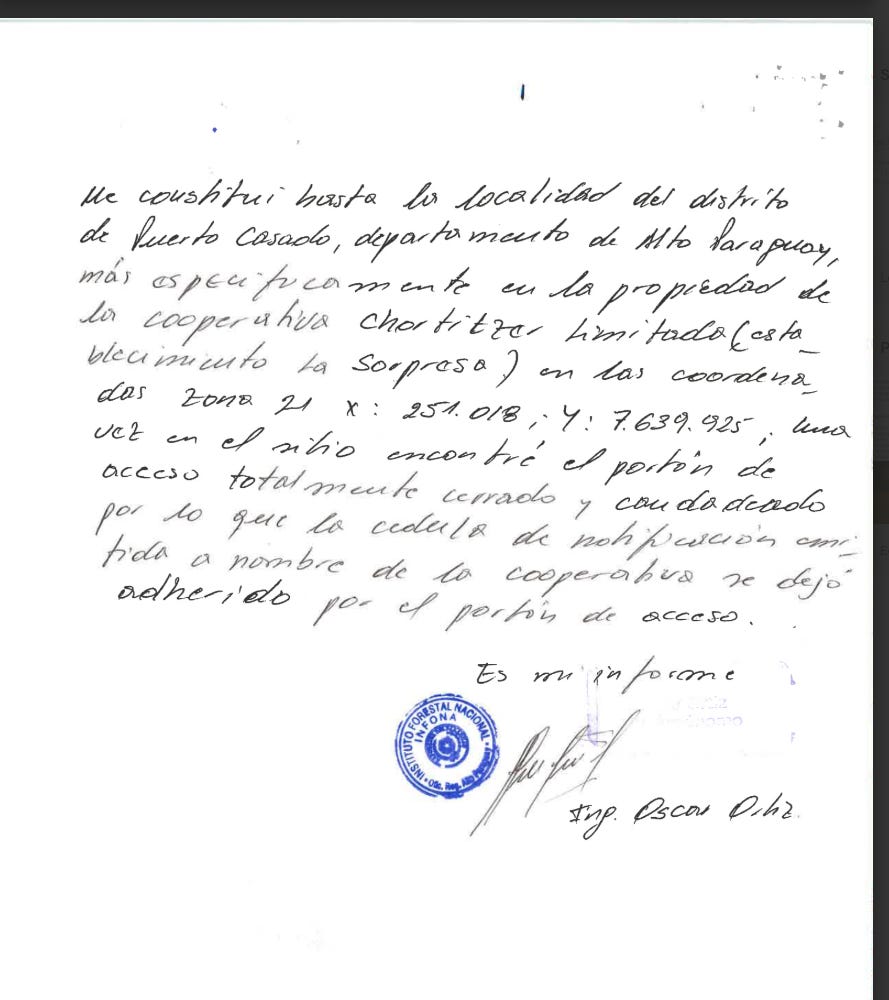 Me constitui hasta la localidad del distrito
de Puerto Casado, departamento de Alto Paraguay,
más especificamente en la propiedad de
la cooperativa chortitzer limitada (esta_
blecimiento la Sorpresa) en las coordena_
das zona 21 x: 251.018; Y: 7.639.925; una
vez en el sitio encontré el portón de
acceso totalmente cerrado y candadeado
por lo que la cedula de notificación emi-
tida a nombre de la cooperativa se dejó
adherido por el portón de acceso.
Es mi informe
INSTITUTO FORESTAL NACIONAL
INFONA
Ofic. Reg. Alto
Ing. Oscar Ortiz.